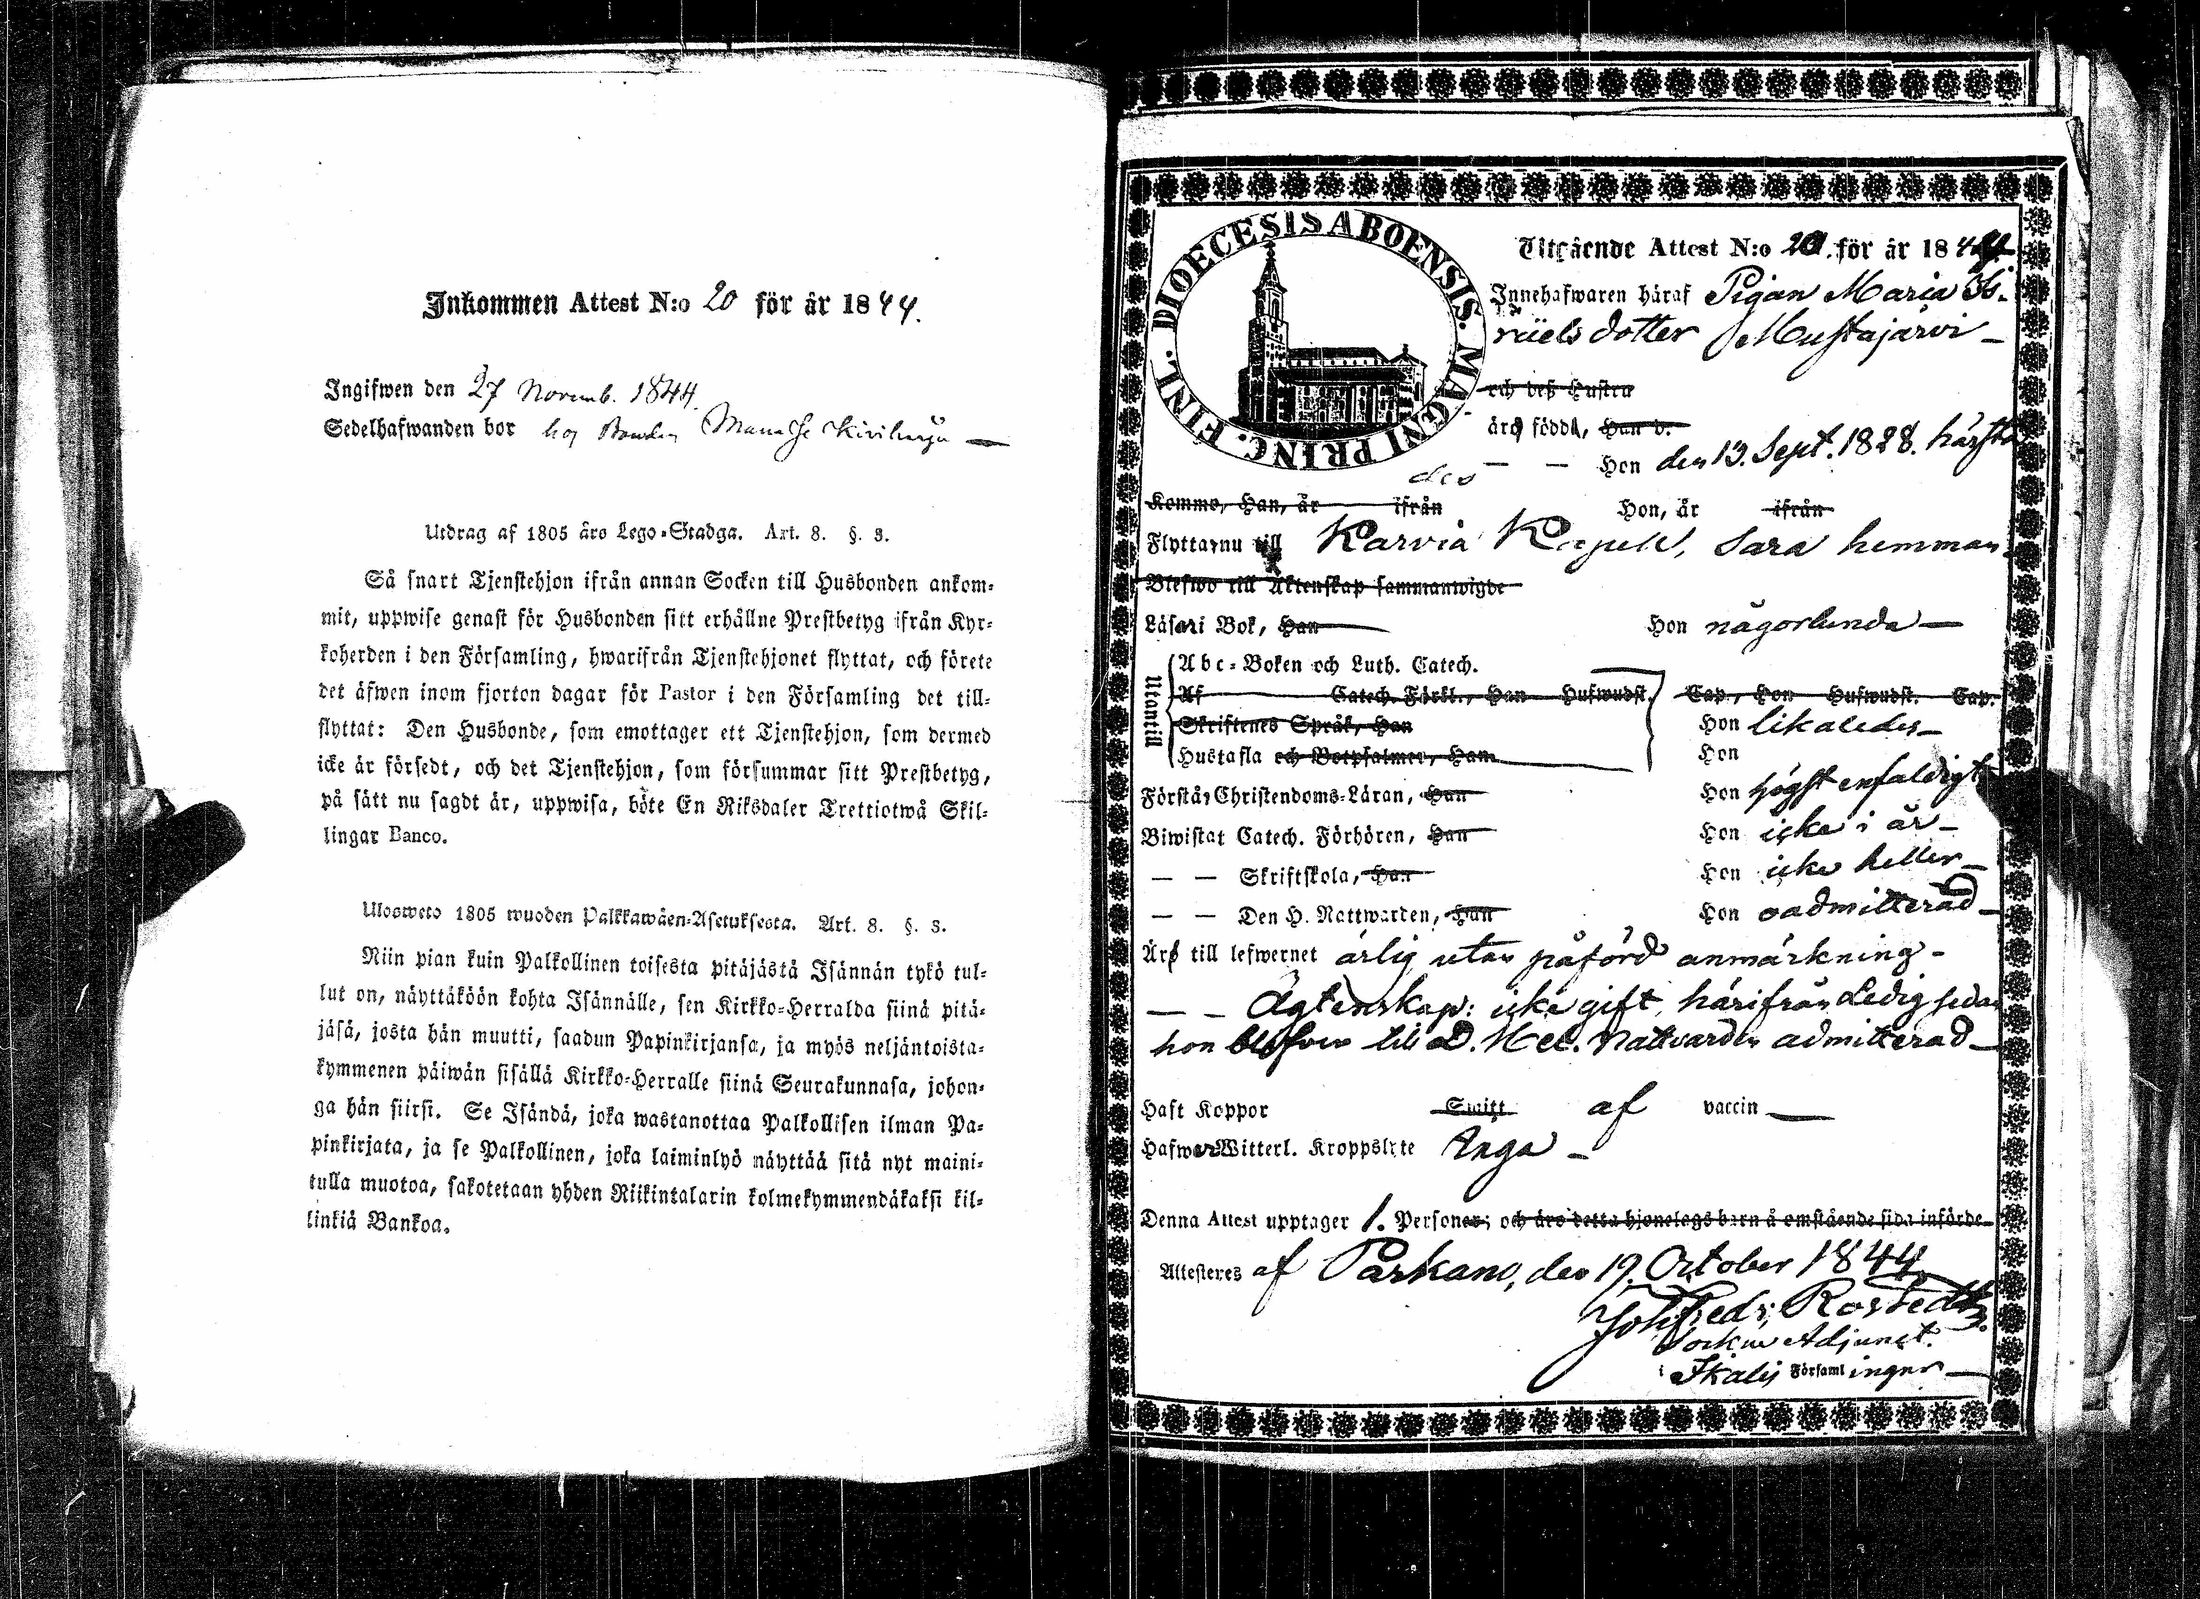 Inkommen Attest N:o 20 för år 1844.
Ingifwen den 27 Novemb. 1844.
Sedelhafwanden bor hos Bonden Manasse Kiviharju
Utdrag af 1805 års Lego-Stadga. Art. 8. §. 3.
Så snart Tjenstehjon ifrån annan Socken till Husbonden ankom-
mit, uppwise genast för Husbonden sitt erhållne Prestbetyg ifrån Kyr-
koherden i den Församling, hwarifrån Tjenstehjonet flyttat, och förete
det äfwen inom fjorton dagar för Pastor i den Församling det till-
flyttat: Den Husbonde, som emottager ett Tjenstehjon, som dermed
icke är försedt, och det Tjenstehjon, som försummar sitt Prestbetyg,
på sätt nu sagdt är, uppwisa, böte En Riksdaler Trettiotwå Skil-
lingar Banco.
Ulosweto 1805 wuoden Palkkawäen-Asetuksesta. Art. 8. §. 3.
Niin pian kuin Palkollinen toisesta pitäjästä Isännän tykö tul-
lut on, näyttäköön kohta Isännälle, sen Kirkko-Herralda siinä pitä-
jäsä, josta hän muutti, saadun Papinkirjansa, ja myös neljäntoista-
kymmenen päiwän sisällä Kirkko-Herralle siinä Seurakunnasa, johon-
ga hän siirsi. Se Isändä, joka wastanottaa Palkollisen ilman Pa-
pinkirjata, ja se Palkollinen, joka laiminlyö näyttää sitä nyt maini-
tulla muotoa, sakotetaan yhden Riikintalarin kolmekymmendäkaksi kil-
linkiä Bankoa.
DIOECESIS ABOENSIS. MAGNI PRINC. FINL.
Utgående Attest N:o 20. för år 1844
Innehafwaren häraf Pigan Maria Is-
raels dotter Mustajärvi
och deß Hustru
är född, Han d.
— — Hon den 13. Sept. 1828. härstä
des
Komne, Han, år ifrån Hon, år ifrån
Flyttar nu till Karvia Kapell, Sara hemman
Blefwo till Äktenskap sammanwigde
Läser i Bok, Han Hon någorlunda
Utantill
Abc-Boken och Luth. Catech.
Af Catech. Förkl., Han Hufwudst. Cap., Hon Hufwudst. Cap.
Skriftenes Språk, Han Hon likaledes
Hustafla och Botpsalmer, Han Hon
Förstår Christendoms-Läran, Han Hon högst enfaldigt
Biwistat Catech. Förhören, Han Hon icke i år
— — Skriftskola, Han Hon icke heller
— — Den H. Nattwarden, Han Hon oadmitterad
Är till lefwernet ärlig utan påförd anmärkning
— — Ägtenskap: icke gift, härifrån Ledig sedan
hon blifven till D. Hel. Nattvarden admitterad
Haft Koppor Smitt af vaccin
Hafwer Witterl. Kroppslyte Inga
Denna Attest upptager 1. Personer; och äro detta hjonelags barn å omstående sida införde
Attesteres af Parkano, den 19. October 1844
Joh Fredr: Rostedt
Sockne Adjunct.
i Ikalis Församlingar